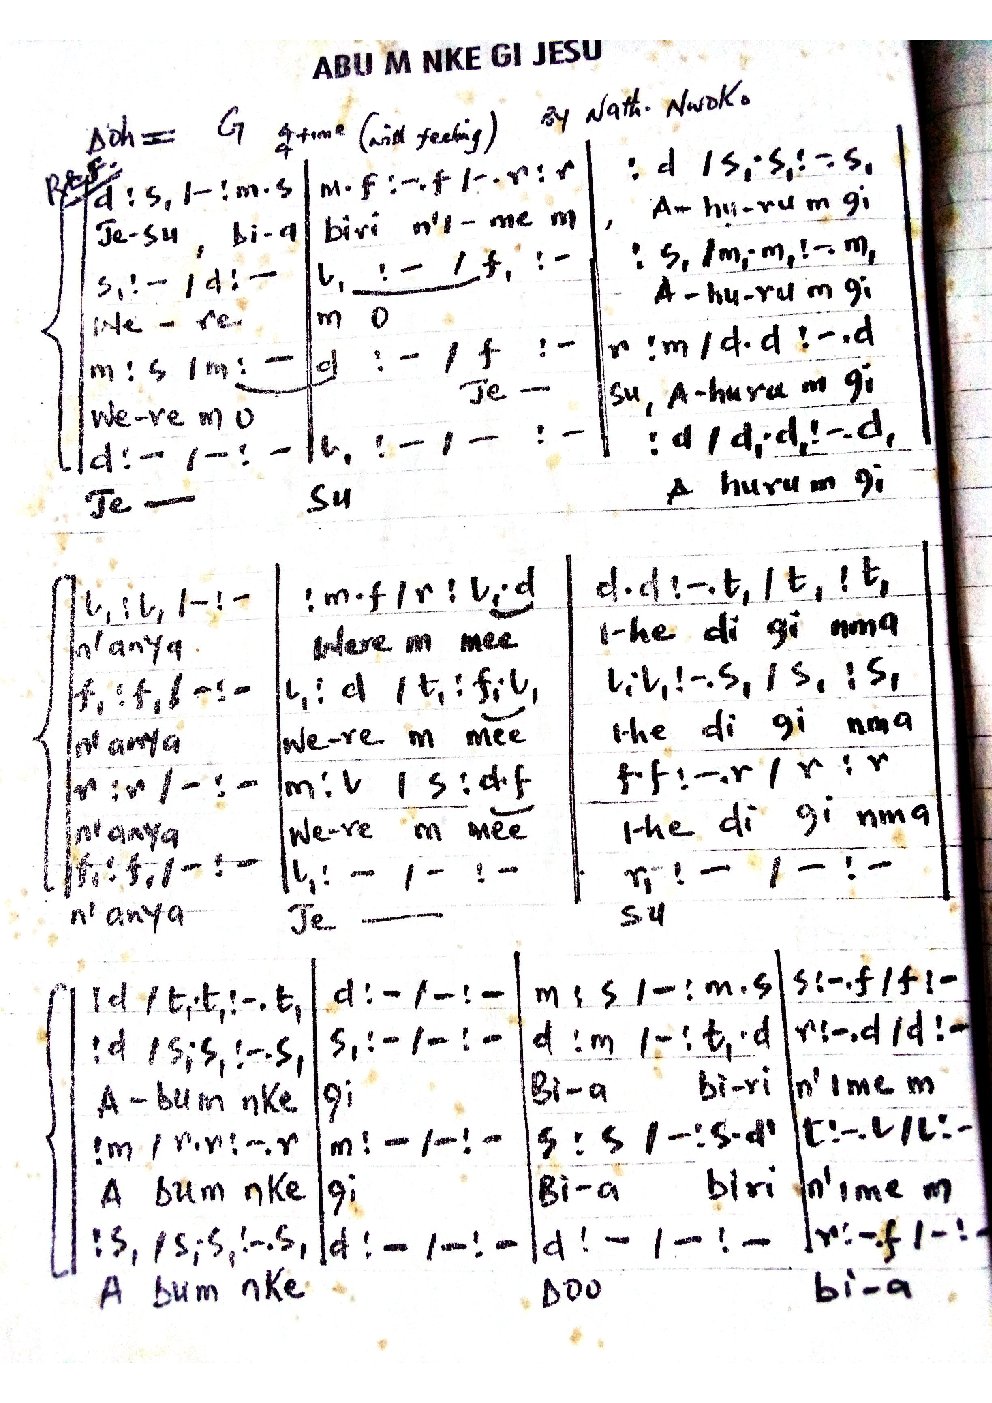 ABU M NKE GI JESU
Doh = G 4/4 time (with feeling) By Nath. Nwoko.
Ref.
d : s, / - : m.s | m.f : -.f / -.r : r | : d / s,.s, : -.s,
Je-su, bi-a | biri n'i-me m, | A-hu-ru m gi
s, : - / d : - | l, : - / f, : - | : s, / m,.m, : -.m,
We - re | m O | A-hu-ru m gi
m : s / m : - | d : - / f : - | r : m / d.d : -.d
We-re m O | Je - | su, A-huru m gi
d : - / - : - | l, : - / - : - | : d / d,.d, : -.d,
Je — | su | A huru m gi
l, : l, / - : - | : m.f / r : l,.d | d.d : -.t, / t, : t,
n'anya | Were m mee | I-he di gi nma
f, : f, / - : - | l, : d / t, : f,.l, | l,.l, : -.s, / s, : s,
n'anya | We-re m mee | I-he di gi nma
r : r / - : - | m : l / s : d.f | f.f : -.r / r : r
n'anya | We-re m mee | I-he di gi nma
f, : f, / - : - | l, : - / - : - | r, : - / - : -
n'anya | Je — | su
: d / t,.t, : -.t, | d : - / - : - | m : s / - : m.s | s : -.f / f : -
: d / s,.s, : -.s, | s, : - / - : - | d : m / - : t,.d | r : -.d / d : -
A-bum nke | gi | Bi-a bi-ri | n'ime m
: m / r.r : -.r | m : - / - : - | s : s / - : s.d' | t : -.l / l : -
A bum nke | gi | Bi-a biri | n'ime m
: s, / s,.s, : -.s, | d : - / - : - | d : - / - : - | r : -.f / - : -
A bum nke | Doo | bi-a